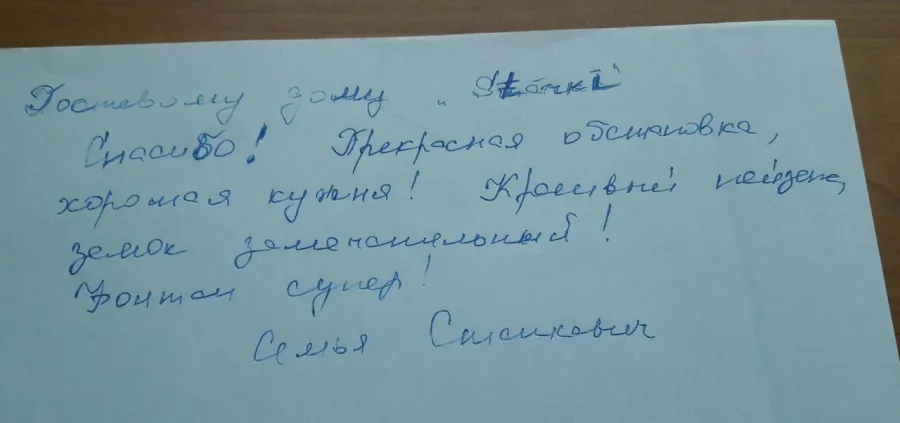 Гостевому дому "Stárki"
Спасибо! Прекрасная обстановка,
хорошая кухня! Красивый пейзаж,
замок замечательный!
Фонтан супер!
Семья